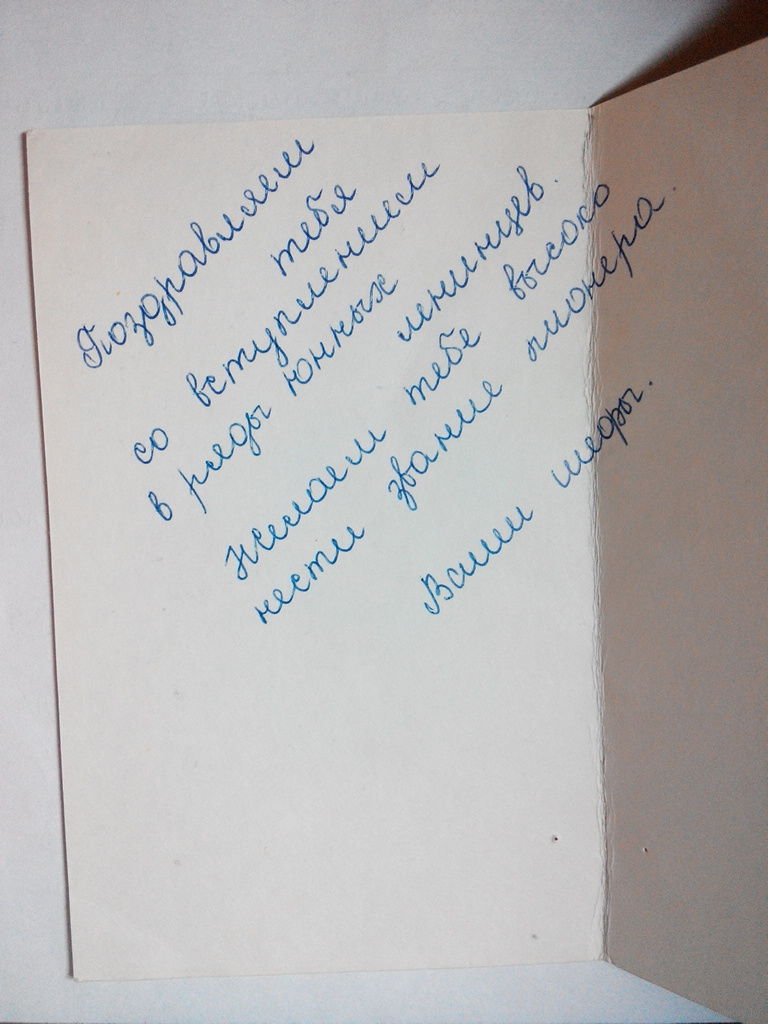 Поздравляем
тебя
со вступлением
в ряды юнных
ленинцев.
Желаем тебе высоко
нести звание пионера.
Ваши шефы.